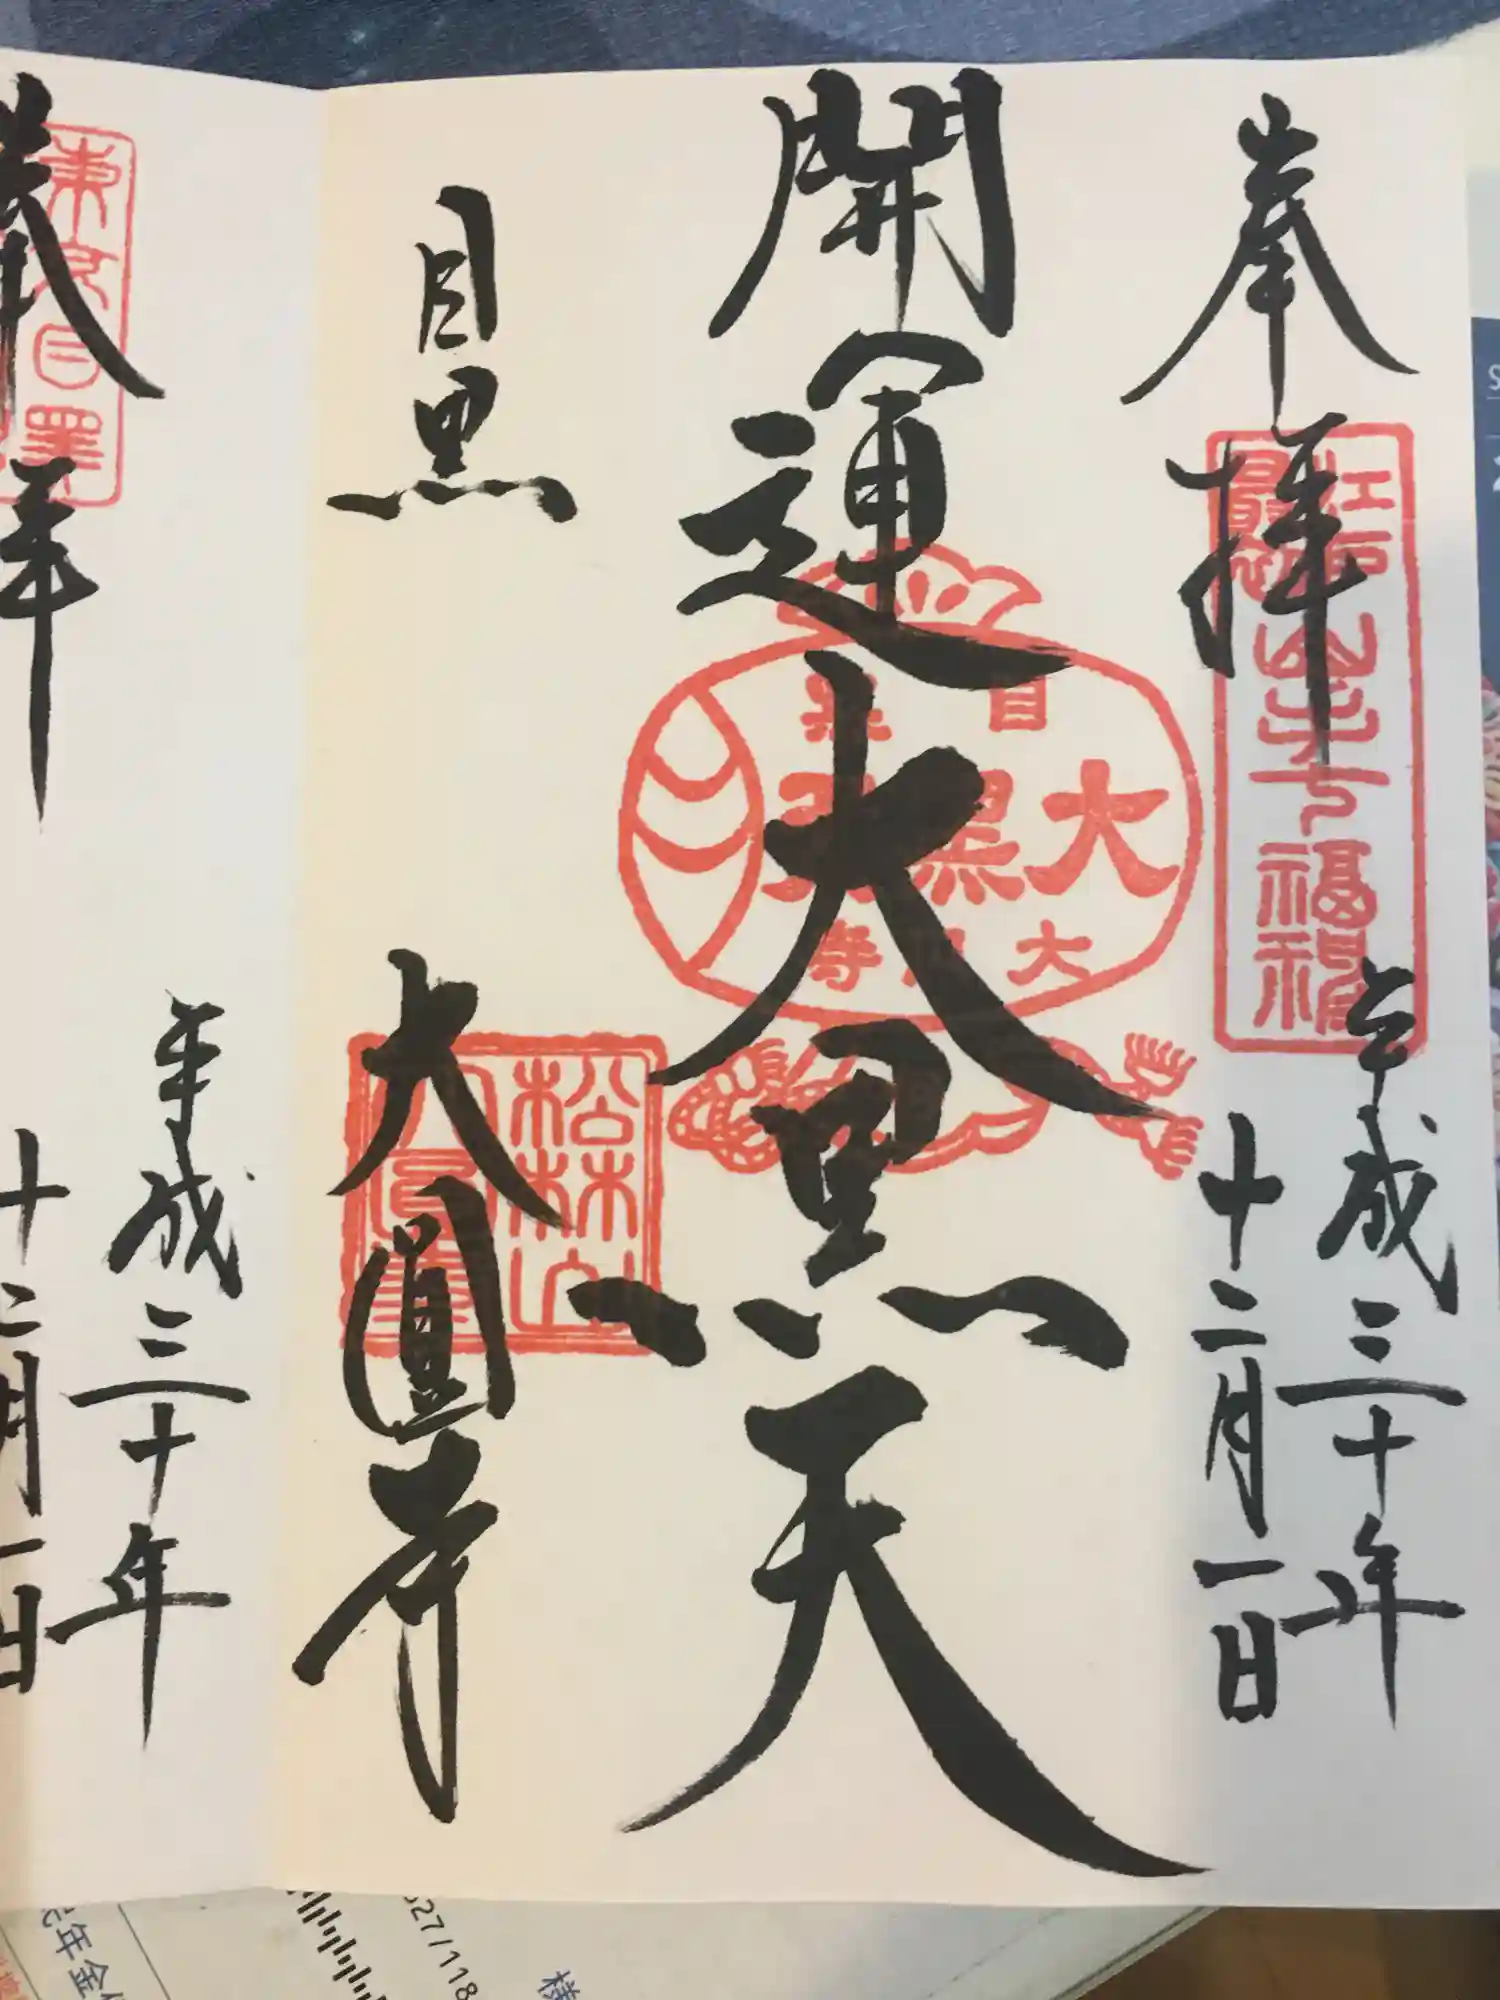 奉拝
江戸最初山手七福神
平成三十年
十二月一日
開運大黒天
目黒
大黒天
大円寺
目黒
大圓寺
松林山
大圓寺
奉拝
平成三十年
十二月一日
年金
627/118
様